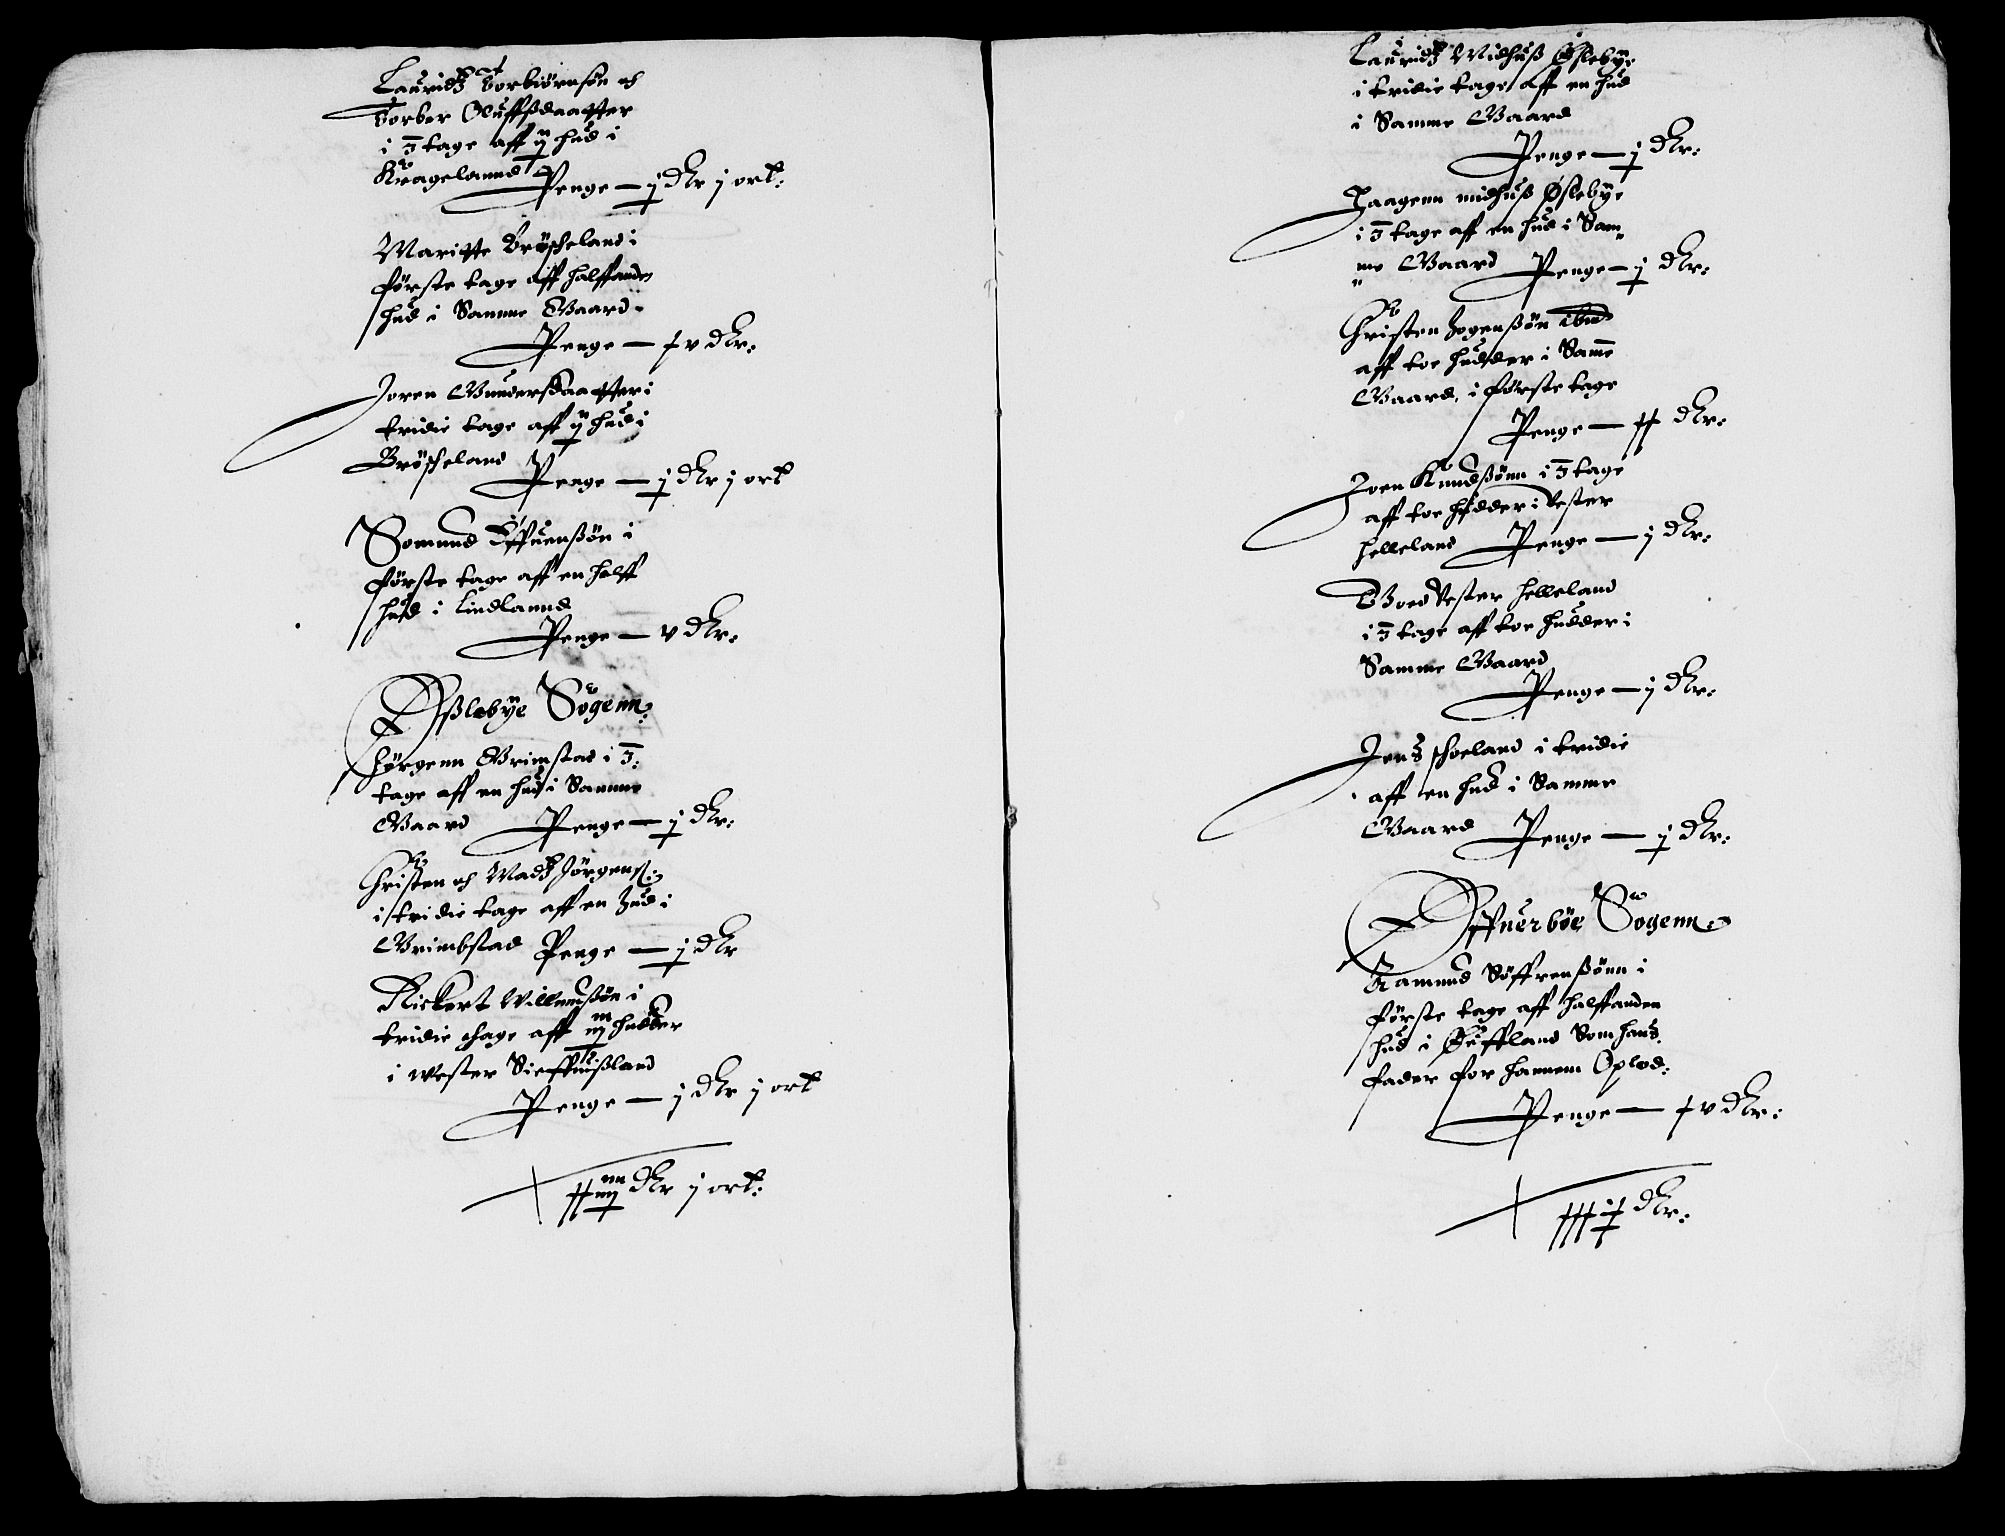 Lauridtz Torbiørnsøn och
Torber Oluffsdaatter
i 3 tage aff ij hud i
Kragelannd
Penge — j dlr j ort:
Maritte Brøscheland i
første tage aff halffanden
hud i Samme Gaard.
Penge — xv dlr:
Joren Gunderssdaatter i
tridie tage aff ij hud i
Brøscheland
Penge — j dlr j ort
Somund Effuensøn i
første tage aff en halff
hud i Lindlannd
Penge — v dlr:
Øslebye Sogenn:
Jørgenn Grimstad i 3:
tage aff en hud i Samme
Gaard Penge — j dlr:
Christen och Madtz Jørgens:
i tridie tage aff en hud i
Grimbstad Penge — j dlr
Rickert Willumsøn i
tridie thage aff iij hudder
i Wester
Penge — j dlr j ort
dlr j ort:
Lauridtz Midhuss Øslebye
i tridie tage aff en hud
i Samme Gaard
Penge — j dlr:
Haagenn midhuss Øslebye
i 3 tage aff en hud i Sam„
„me Gaard Penge — j dlr:
Christen Jogenssøn ibid
aff toe hudder i Samme
Gaard, i første tage
Penge — xx dlr:
Joen Knudssønn i 3 tage
aff toe hudder i Vester
helleland Penge — j dlr:
Goed Vester helleland
i 3 tage aff toe hudder i
Samme Gaard
Penge — j dlr:
Jens schoeland i tridie
aff en hud i Samme
Gaard Penge — j dlr:
Øffuerbøe Sogenn:
Aamund Søffrenssønn i
første tage aff halffanden
hud i Øuffland Som hans
fader for hannem Oplod:
Penge — xv dlr:
dlr: